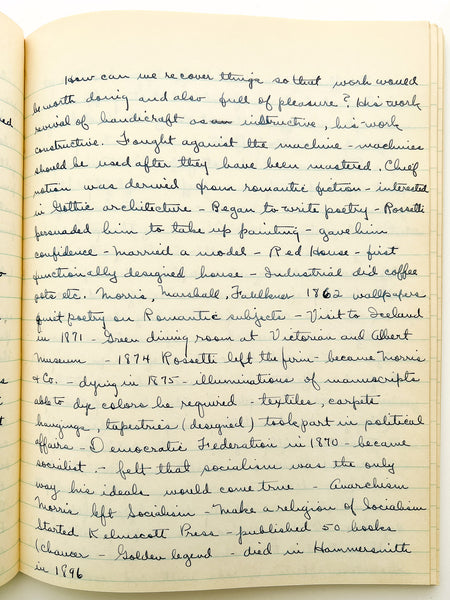 How can we recover things so that work would
be worth doing and also full of pleasure? His work
revival of handicraft as an instructive, his work
constructive. Fought against the machine - machines
should be used after they have been mastered. Chief
notion was derived from romantic fiction - interested
in Gothic architecture - Began to write poetry - Rossetti
persuaded him to take up painting - gave him
confidence - Married a model - Red House - first
functionally designed house - Industrial did coffee
pots etc. Morris, Marshall, Faulkner 1862 wallpapers
quit poetry on Romantic subjects - Visit to Iceland
in 1871 - Green dining room at Victorian and Albert
Museum - 1874 Rossetti left the firm - became Morris
& Co. - dyeing in 1875 - illuminations of manuscripts
able to dye colors he required - textiles, carpets
hangings, tapestries (designed) took part in political
affairs - Democratic Federation in 1870 - became
socialist. - felt that socialism was the only
way his ideals would come true - Anarchism
Morris left Socialism - Make a religion of Socialism
Started Kelmscott Press - published 50 books
(chaucer - Golden legend - died in Hammersmith
in 1896